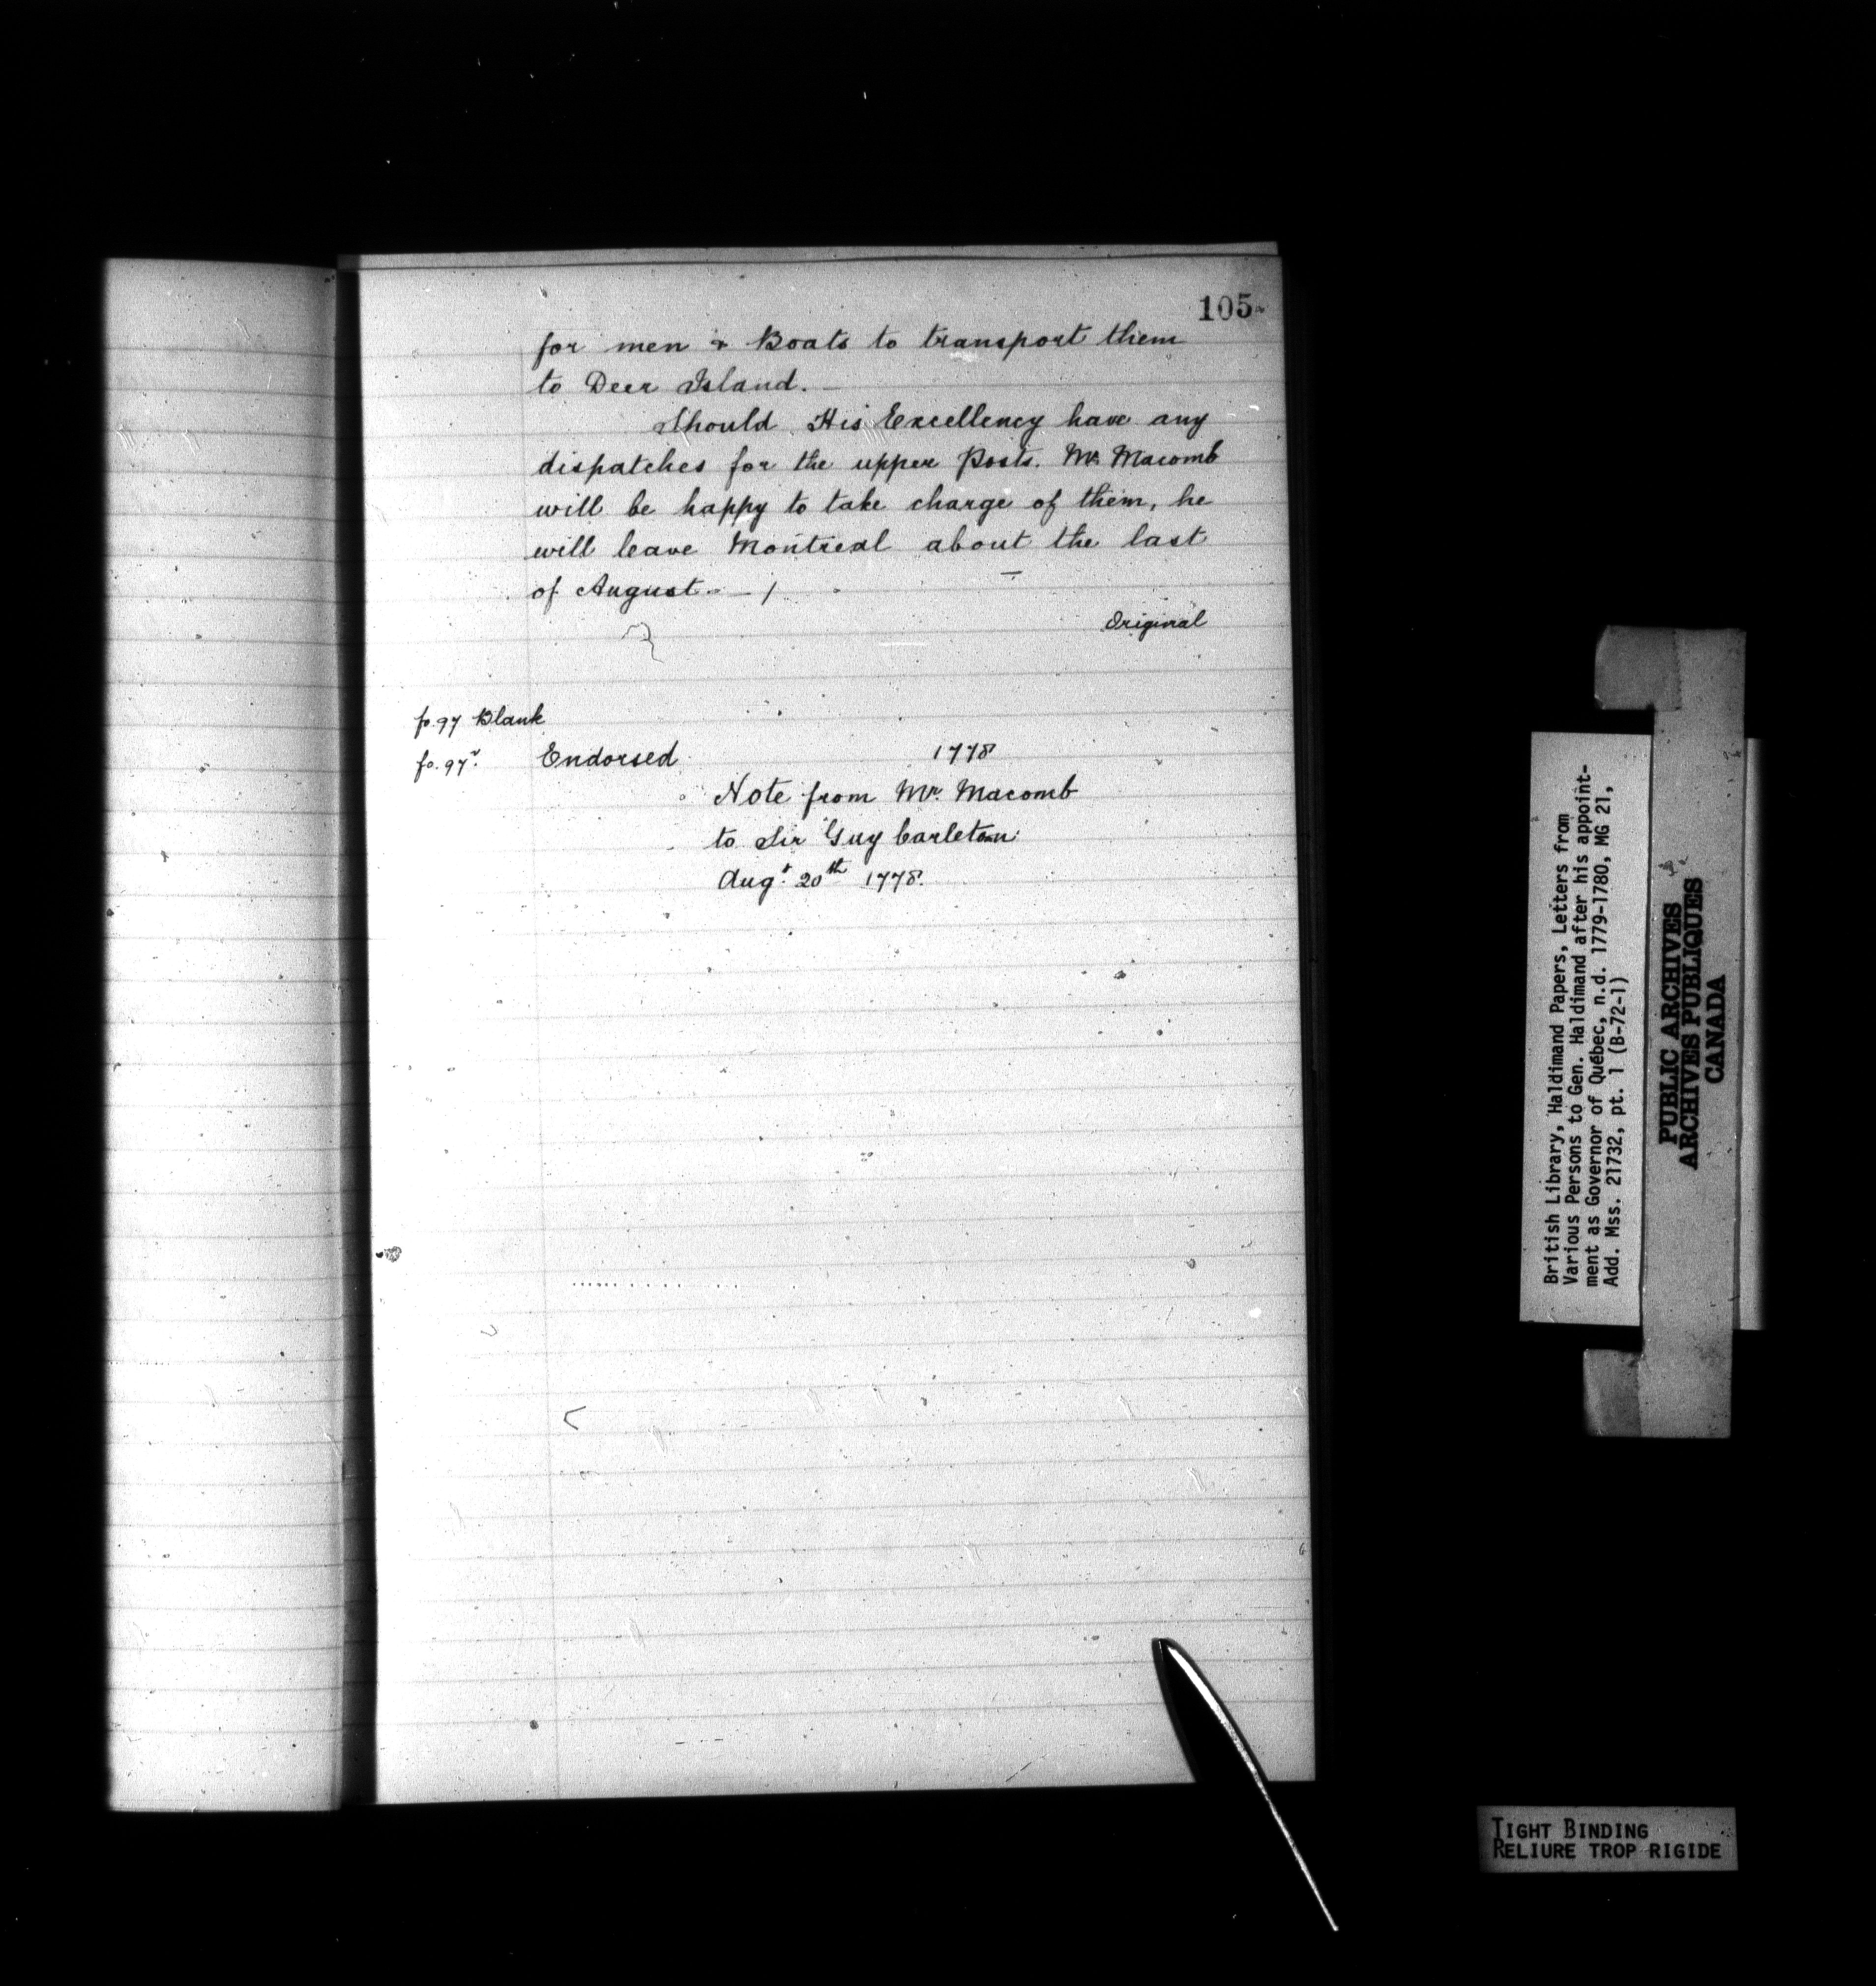 105
for men & Boats to transport them
to Deer Island.
Should His Excellency have any
dispatches for the upper Posts. Mr. Macomb
will be happy to take charge of them, he
will leave Montreal about the last
of August. — /
Original
fo. 97 Blank
fo. 97v. Endorsed 1778
Note from Mr. Macomb
to Sir Guy Carleton
Augt. 20th 1778.
British Library, Haldimand Papers, Letters from
Various Persons to Gen. Haldimand after his appoint-
ment as Governor of Québec, n.d. 1779-1780, MG 21,
Add. Mss. 21732, pt. 1 (B-72-1)
PUBLIC ARCHIVES
ARCHIVES PUBLIQUES
CANADA
TIGHT BINDING
RELIURE TROP RIGIDE